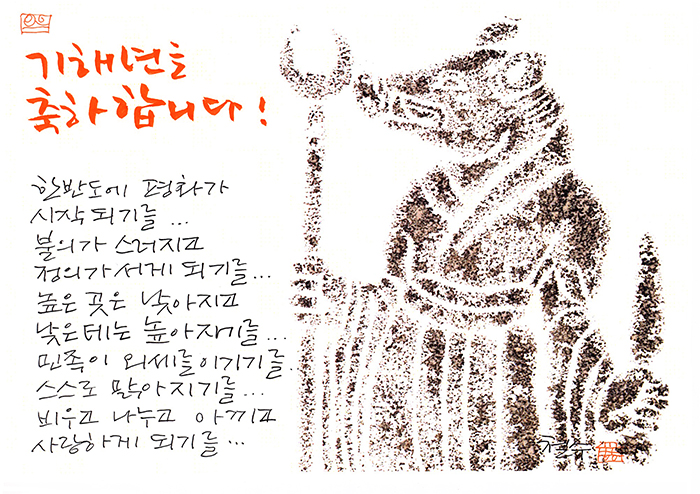 기해년을
축하합니다!
한반도에 평화가
시작되기를...
불의가 스러지고
정의가 서게 되기를...
높은 곳은 낮아지고
낮은데는 높아지기를...
민족이 외세를 이기기를
스스로 맑아지기를...
비우고 나누고 아끼고
사랑하게 되기를...
철수